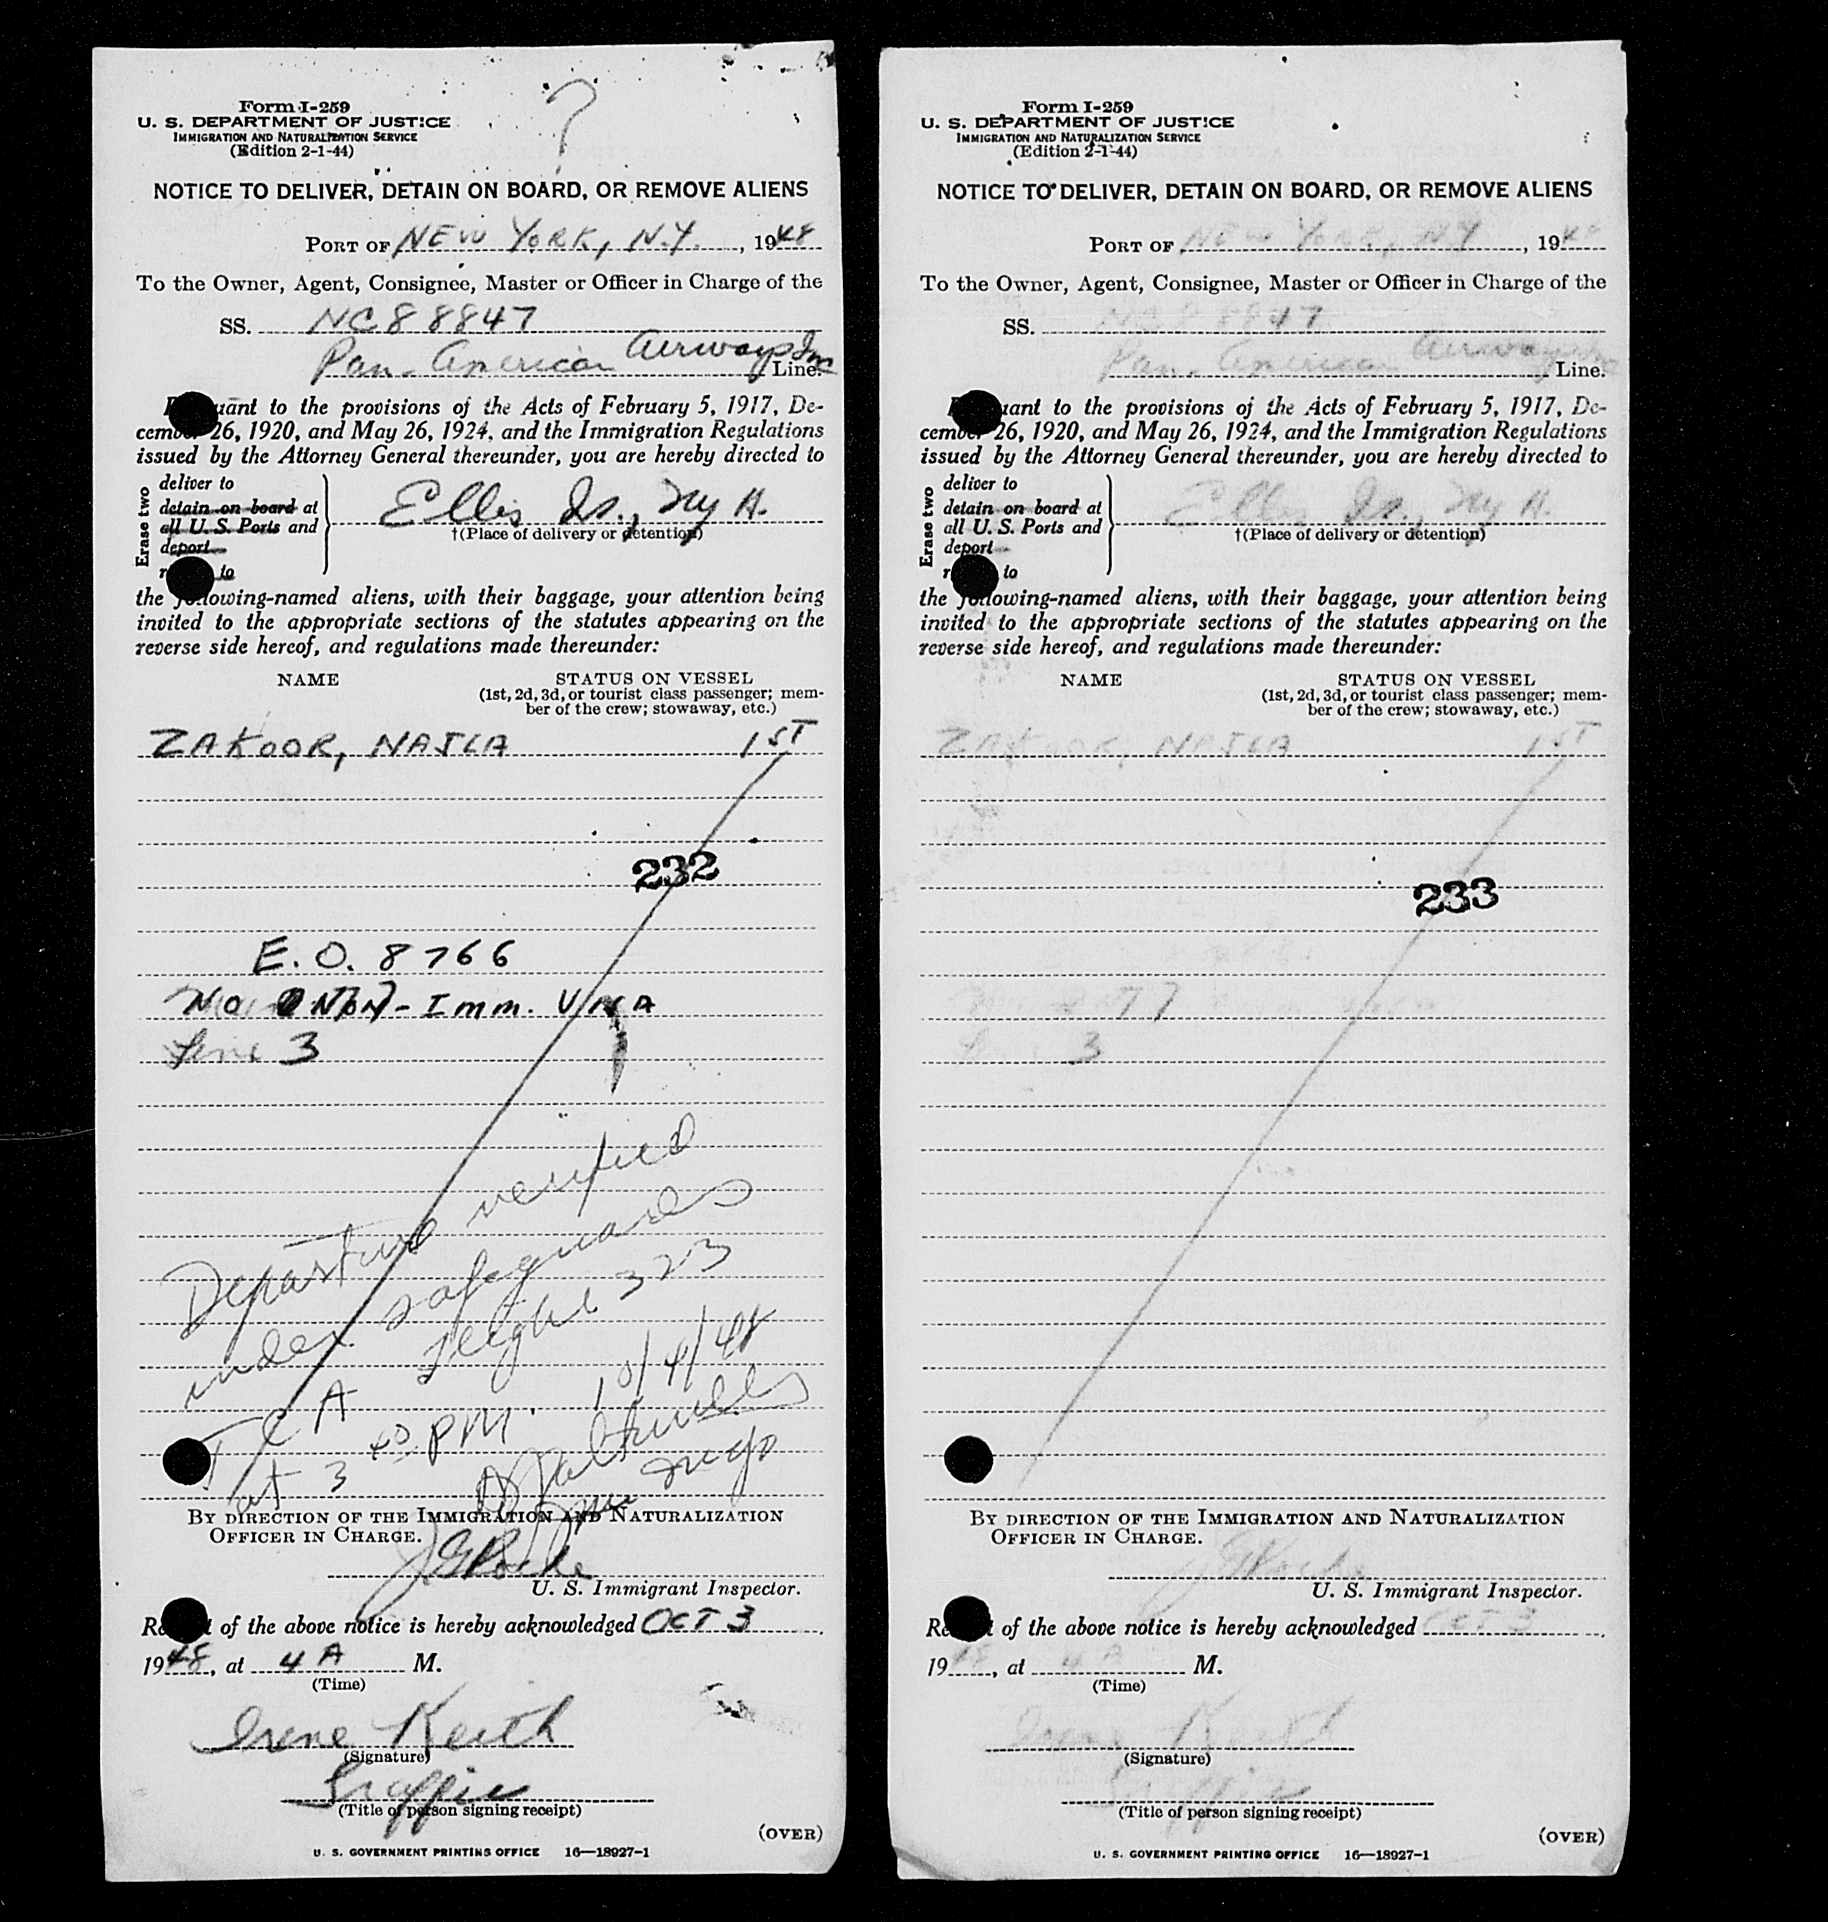 Form I-259
U. S. DEPARTMENT OF JUSTICE
IMMIGRATION AND NATURALIZATION SERVICE
(Edition 2-1-44)
NOTICE TO DELIVER, DETAIN ON BOARD, OR REMOVE ALIENS
PORT OF NEW YORK, N.Y. , 1948
To the Owner, Agent, Consignee, Master or Officer in Charge of the
SS. NC88847
Pan-American Airways Inc Line.
uant to the provisions of the Acts of February 5, 1917, De-
cember 26, 1920, and May 26, 1924, and the Immigration Regulations
issued by the Attorney General thereunder, you are hereby directed to
Erase two
deliver to
detain on board at
all U. S. Ports and
deport
to
Ellis Is., NY H.
†(Place of delivery or detention)
the following-named aliens, with their baggage, your attention being
invited to the appropriate sections of the statutes appearing on the
reverse side hereof, and regulations made thereunder:
NAME STATUS ON VESSEL
(1st, 2d, 3d, or tourist class passenger; mem-
ber of the crew; stowaway, etc.)
ZAKOOR, NAJLA 1ST
232
E. O. 8766
NO NON-Imm. VISA
Line 3
Departure verified
under safeguards
flight 323
TCA 10/4/48
at 3 40 PM.
BY DIRECTION OF THE IMMIGRATION AND NATURALIZATION
OFFICER IN CHARGE.
J. G. Roche
U. S. Immigrant Inspector.
of the above notice is hereby acknowledged OCT 3 .
1948, at 4 A M.
(Time)
Irene Keith
(Signature)
Traffic
(Title of person signing receipt)
(OVER)
U. S. GOVERNMENT PRINTING OFFICE 16—18927-1
Form I-259
U. S. DEPARTMENT OF JUSTICE
IMMIGRATION AND NATURALIZATION SERVICE
(Edition 2-1-44)
NOTICE TO DELIVER, DETAIN ON BOARD, OR REMOVE ALIENS
PORT OF NEW YORK, N.Y , 1948
To the Owner, Agent, Consignee, Master or Officer in Charge of the
SS. NC88847
Pan-American Airways Inc Line.
uant to the provisions of the Acts of February 5, 1917, De-
cember 26, 1920, and May 26, 1924, and the Immigration Regulations
issued by the Attorney General thereunder, you are hereby directed to
Erase two
deliver to
detain on board at
all U. S. Ports and
deport
to
Ellis Is., NY H.
†(Place of delivery or detention)
the following-named aliens, with their baggage, your attention being
invited to the appropriate sections of the statutes appearing on the
reverse side hereof, and regulations made thereunder:
NAME STATUS ON VESSEL
(1st, 2d, 3d, or tourist class passenger; mem-
ber of the crew; stowaway, etc.)
ZAKOOR, NAJLA 1ST
233
77
3
BY DIRECTION OF THE IMMIGRATION AND NATURALIZATION
OFFICER IN CHARGE.
J. G. Roche
U. S. Immigrant Inspector.
of the above notice is hereby acknowledged OCT 3 .
1948, at 4 A M.
(Time)
Irene Keith
(Signature)
Traffic
(Title of person signing receipt)
(OVER)
U. S. GOVERNMENT PRINTING OFFICE 16—18927-1